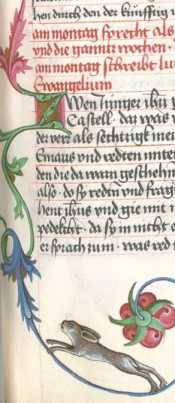 hen durch den der künfftig
am montag sprecht als
vnd die ganntz wochen
am montag schreibt lu
Ewangelium
Zwen iunger ihu
Castell · daz was
der wert als sechtzigk
Emaus vnd redten mite
den die da warn geschehn
also · do sy redtn vnd frag
hent ihus vnd gie mit
bedeckt · daz sy in nicht
er sprach zu in · was red